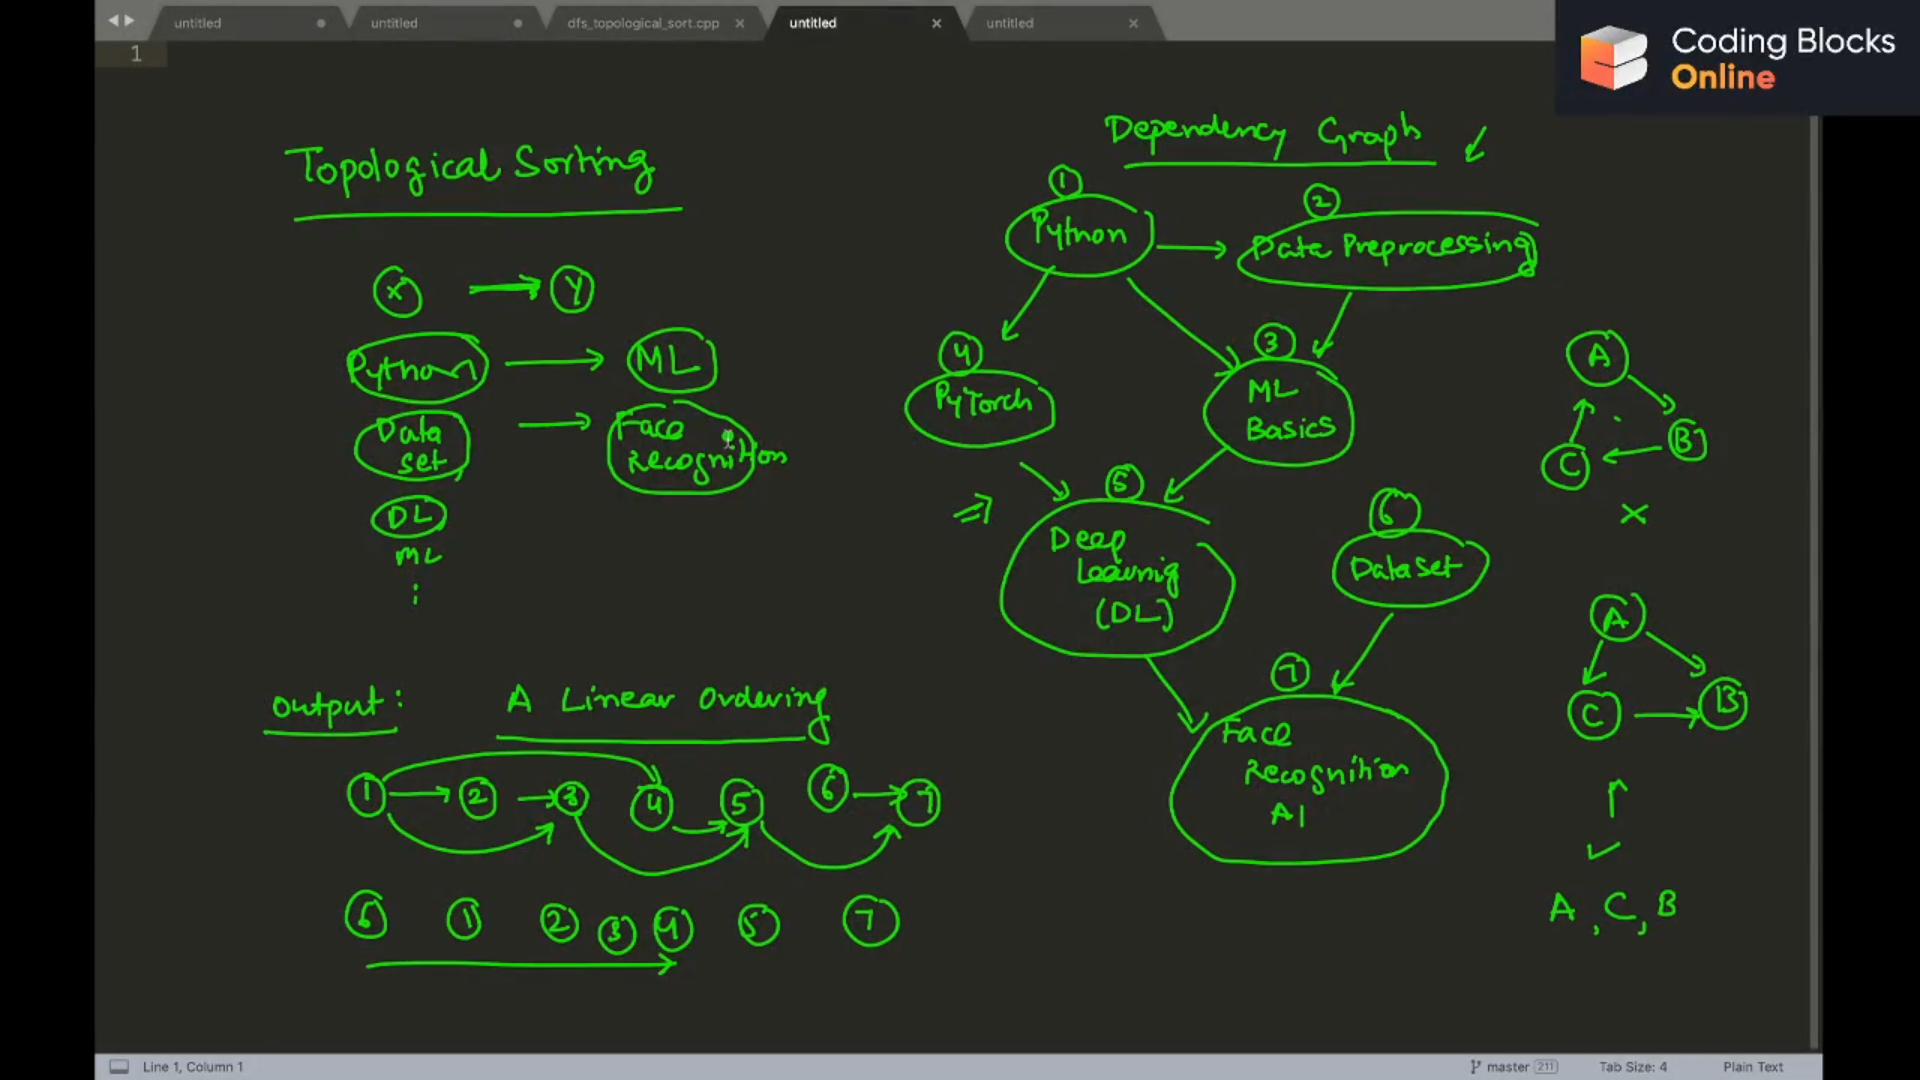 untitled
untitled
dfs_topological_sort.cpp
untitled
untitled
Coding Blocks
Online
1
Topological Sorting
X
Y
Python
ML
Data
set
Face
Recognition
DL
ML
Output:
A Linear Ordering
1 2 3 4 5 6 7
6 1 2 3 4 5 7
Dependency Graph
1
Python
2
Data Preprocessing
4
PyTorch
3
ML
Basics
5
Deep
Learnig
(DL)
6
Dataset
7
Face
Recognition
AI
A
B
C
X
A
C
B
A, C, B
Line 1, Column 1
master 211
Tab Size: 4
Plain Text